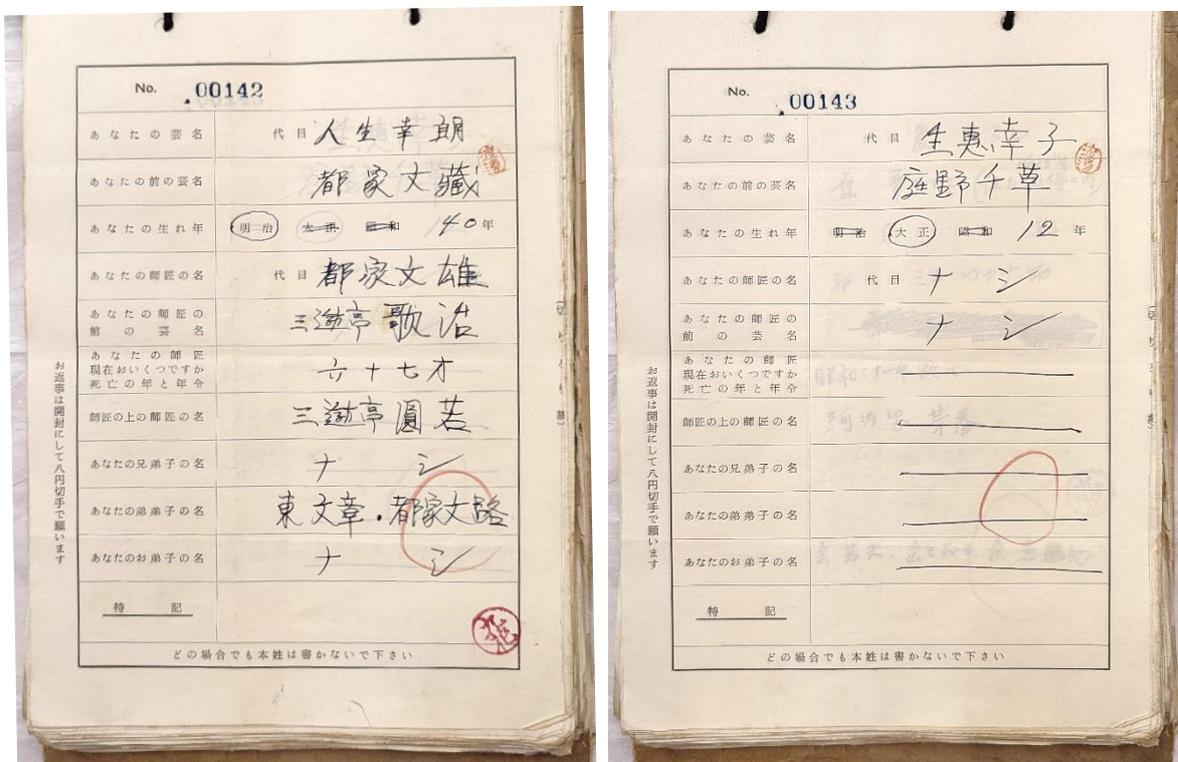 No. 00142
あなたの芸名 代目 人生幸朗
あなたの前の芸名 都家文蔵
あなたの生れ年 明治 大正 昭和 40年
あなたの師匠の名 代目 都家文雄
あなたの師匠の
前の芸名 三遊亭歌治
あなたの師匠
現在おいくつですか 六十七才
死亡の年と年令
師匠の上の師匠の名 三遊亭圓若
あなたの兄弟子の名 ナシ
あなたの弟弟子の名 東文章・都家文路
あなたのお弟子の名 ナシ
特記
どの場合でも本姓は書かないで下さい
お返事は開封にして八円切手で願います
No. 00143
あなたの芸名 代目 生惠幸子
あなたの前の芸名 庭野千草
あなたの生れ年 明治 大正 昭和 12年
あなたの師匠の名 代目 ナシ
あなたの師匠の
前の芸名 ナシ
あなたの師匠
現在おいくつですか
死亡の年と年令
師匠の上の師匠の名
あなたの兄弟子の名
あなたの弟弟子の名
あなたのお弟子の名
特記
どの場合でも本姓は書かないで下さい
お返事は開封にして八円切手で願います